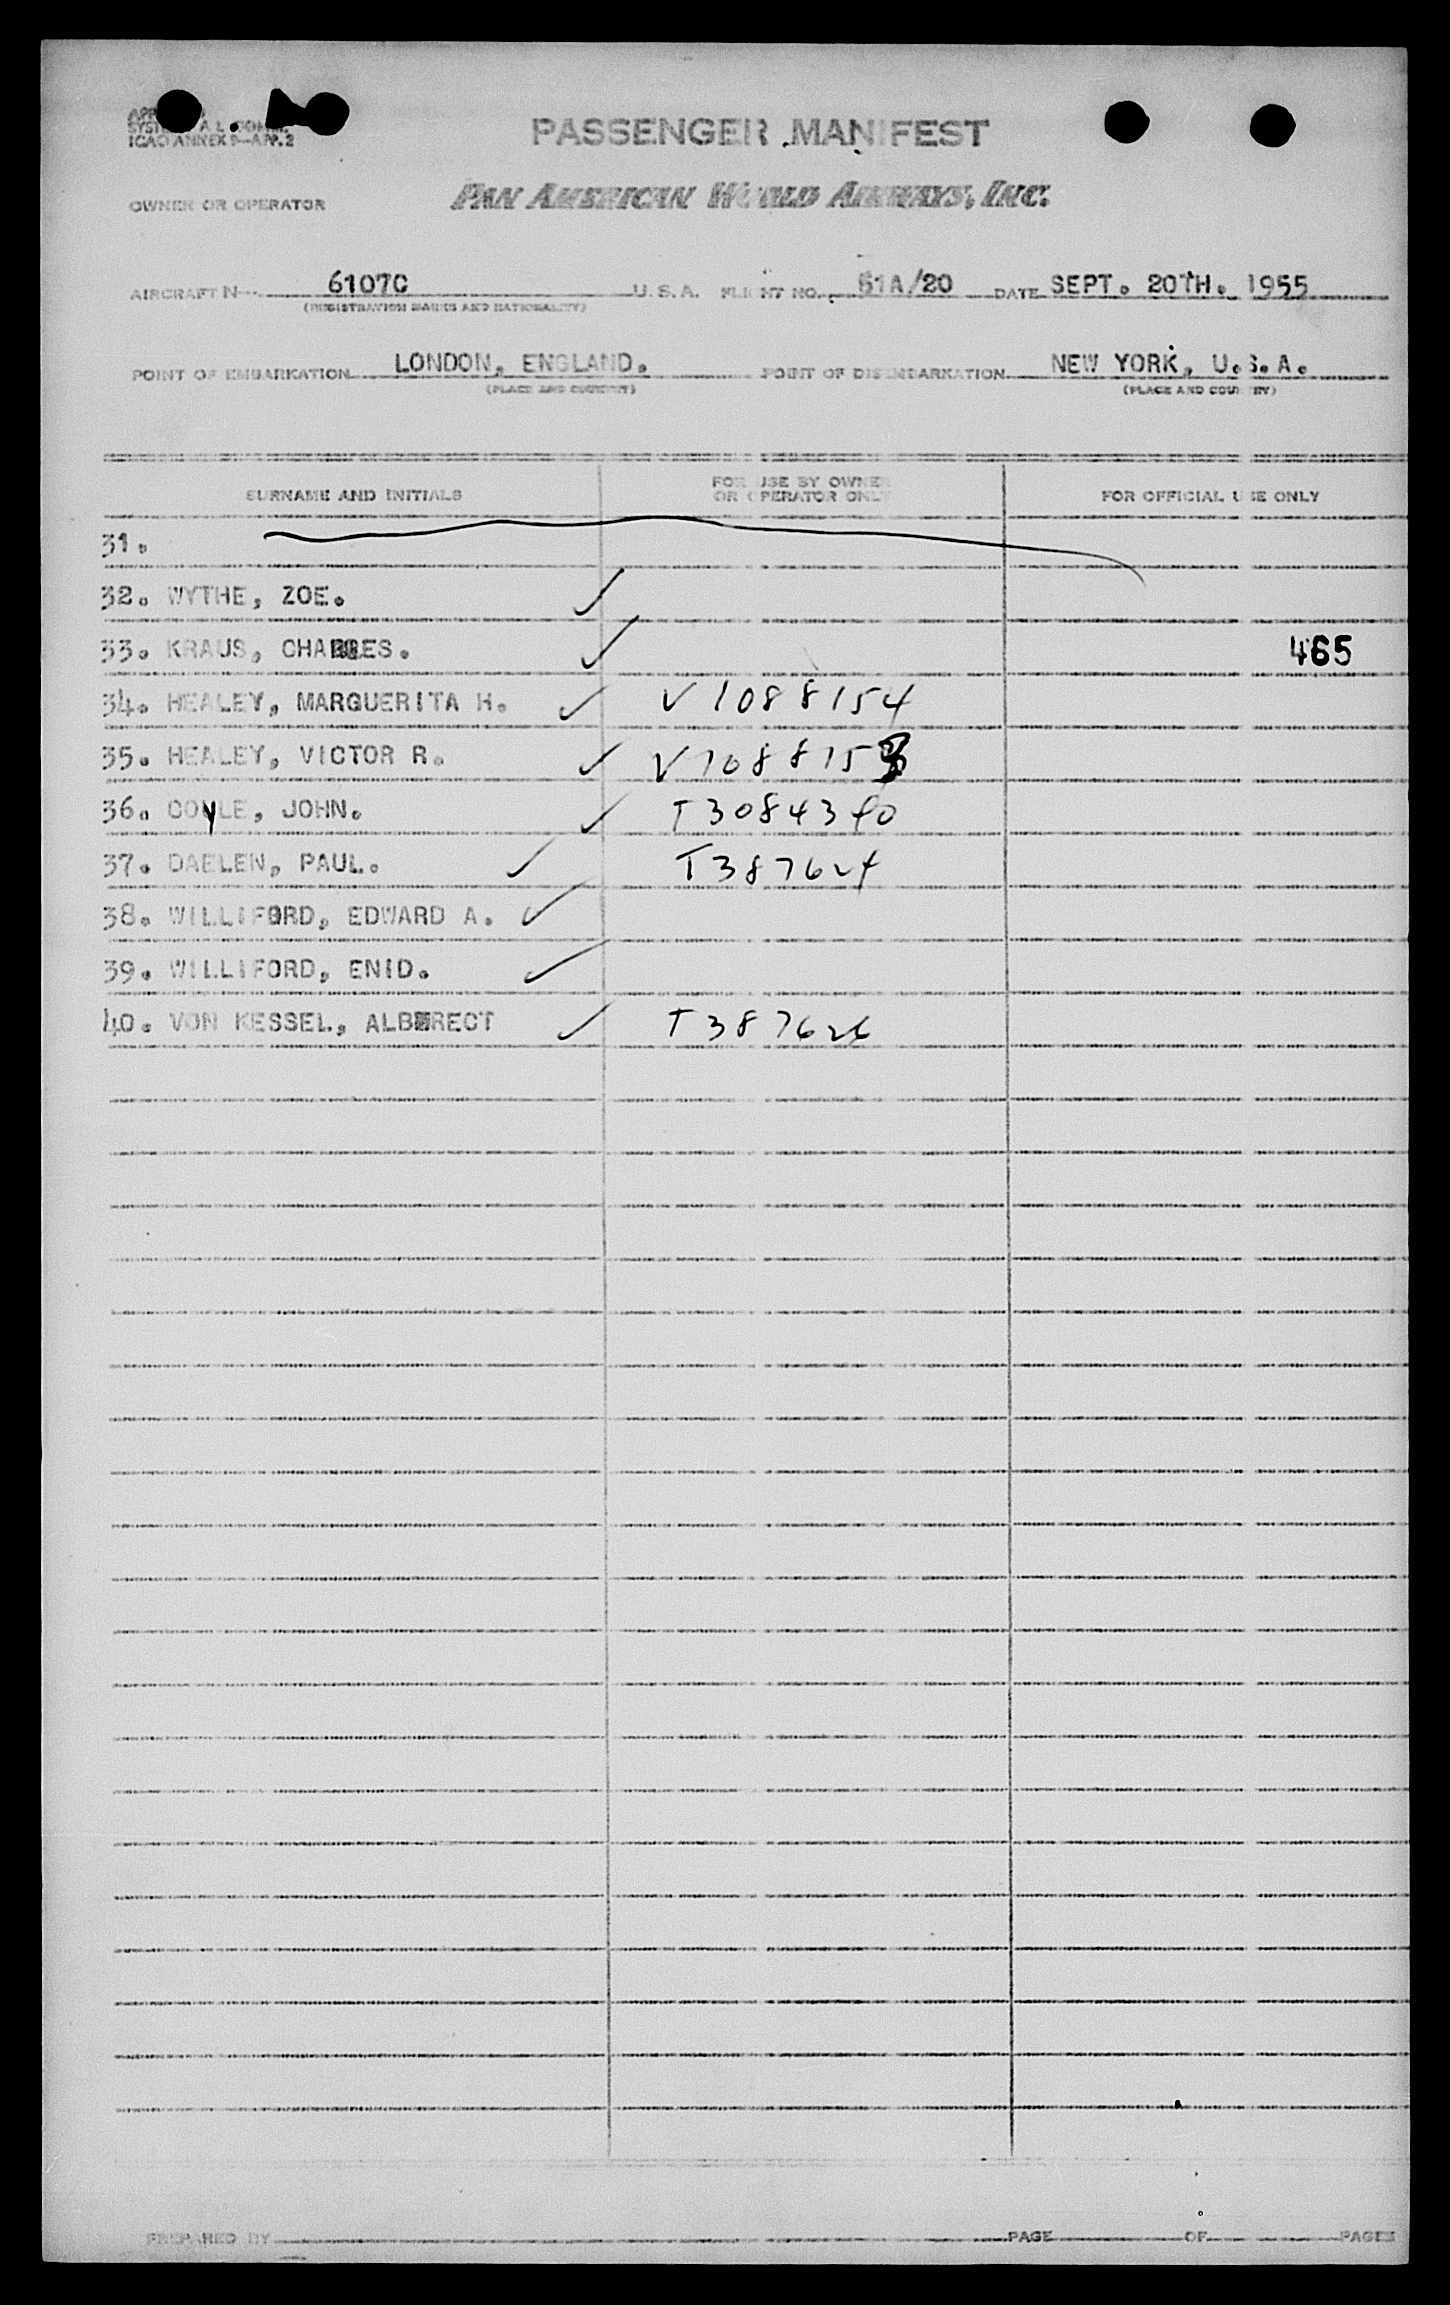 ICAO ANNEX 9—APP. 2
PASSENGER MANIFEST
OWNER OR OPERATOR PAN AMERICAN WORLD AIRWAYS, INC.
AIRCRAFT N 6107C U.S.A. FLIGHT NO. 61A/20 DATE SEPT. 20TH. 1955
(REGISTRATION MARKS AND NATIONALITY)
POINT OF EMBARKATION LONDON, ENGLAND. POINT OF DISEMBARKATION NEW YORK, U.S.A.
(PLACE AND COUNTRY) (PLACE AND COUNTRY)
SURNAME AND INITIALS FOR USE BY OWNER OR OPERATOR ONLY FOR OFFICIAL USE ONLY
31.
32. WYTHE, ZOE. ✓
33. KRAUS, CHARLES. ✓ 465
34. HEALEY, MARGUERITA H. ✓ V1088154
35. HEALEY, VICTOR R. ✓ V1088153
36. COYLE, JOHN. ✓ T3084340
37. DAELEN, PAUL. ✓ T387624
38. WILLIFORD, EDWARD A. ✓
39. WILLIFORD, ENID. ✓
40. VON KESSEL, ALBRECT ✓ T387626
PREPARED BY PAGE OF PAGES